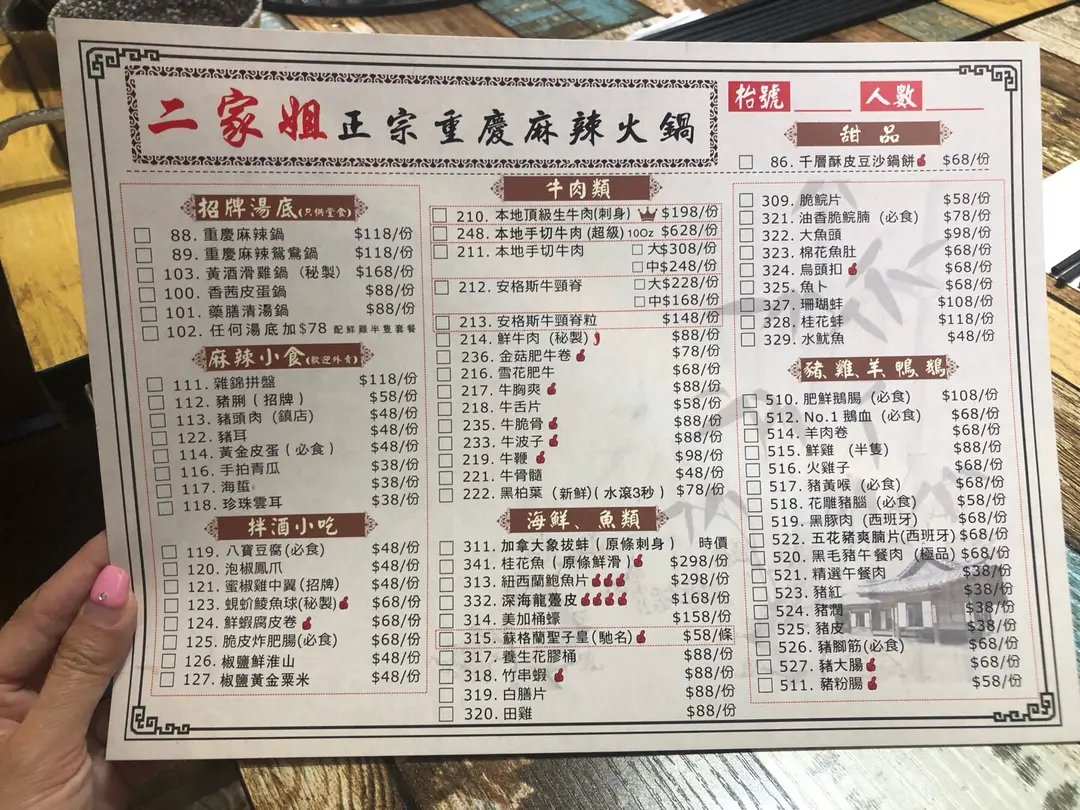 二家姐正宗重慶麻辣火鍋
枱號
人數
招牌湯底(只供堂食)
88. 重慶麻辣鍋 $118/份
89. 重慶麻辣鴛鴦鍋 $118/份
103. 黃酒滑雞鍋 (秘製) $168/份
100. 香茜皮蛋鍋 $88/份
101. 藥膳清湯鍋 $88/份
102. 任何湯底加$78 配鮮雞半隻套餐
麻辣小食(歡迎外賣)
111. 雜錦拼盤 $118/份
112. 豬脷 (招牌) $58/份
113. 豬頭肉 (鎮店) $48/份
122. 豬耳 $48/份
114. 黃金皮蛋 (必食) $48/份
116. 手拍青瓜 $38/份
117. 海蜇 $38/份
118. 珍珠雲耳 $38/份
拌酒小吃
119. 八寶豆腐(必食) $48/份
120. 泡椒鳳爪 $48/份
121. 蜜椒雞中翼(招牌) $48/份
123. 蜆蚧鯪魚球(秘製) $68/份
124. 鮮蝦腐皮卷 $68/份
125. 脆皮炸肥腸(必食) $68/份
126. 椒鹽鮮淮山 $48/份
127. 椒鹽黃金粟米 $48/份
牛肉類
210. 本地頂級生牛肉(刺身) $198/份
248. 本地手切牛肉 (超級) 10Oz $628/份
211. 本地手切牛肉 大$308/份
中$248/份
212. 安格斯牛頸脊 大$228/份
中$168/份
213. 安格斯牛頸脊粒 $148/份
214. 鮮牛肉 (秘製) $88/份
236. 金菇肥牛卷 $78/份
216. 雪花肥牛 $68/份
217. 牛胸爽 $88/份
218. 牛舌片 $58/份
235. 牛脆骨 $88/份
233. 牛波子 $88/份
219. 牛鞭 $98/份
221. 牛骨髓 $48/份
222. 黑柏葉 (新鮮)(水滾3秒) $78/份
海鮮、魚類
311. 加拿大象拔蚌 (原條刺身) 時價
341. 桂花魚 (原條鮮滑) $298/份
313. 紐西蘭鮑魚片 $298/份
332. 深海龍躉皮 $168/份
314. 美加桶蠔 $158/份
315. 蘇格蘭聖子皇(馳名) $58/條
317. 養生花膠桶 $88/份
318. 竹串蝦 $88/份
319. 白膳片 $88/份
320. 田雞 $88/份
甜品
86. 千層酥皮豆沙鍋餅 $68/份
309. 脆鯇片 $58/份
321. 油香脆鯇腩 (必食) $78/份
322. 大魚頭 $98/份
323. 棉花魚肚 $68/份
324. 烏頭扣 $68/份
325. 魚卜 $68/份
327. 珊瑚蚌 $108/份
328. 桂花蚌 $118/份
329. 水魷魚 $48/份
豬、雞、羊、鴨、鵝
510. 肥鮮鵝腸 (必食) $108/份
512. No.1 鵝血 (必食) $68/份
514. 羊肉卷 $68/份
515. 鮮雞 (半隻) $88/份
516. 火雞子 $68/份
517. 豬黃喉 (必食) $68/份
518. 花雕豬腦 (必食) $58/份
519. 黑豚肉 (西班牙) $68/份
522. 五花豬爽腩片(西班牙) $68/份
520. 黑毛豬午餐肉 (極品) $68/份
521. 精選午餐肉 $38/份
523. 豬紅 $38/份
524. 豬潤 $38/份
525. 豬皮 $38/份
526. 豬腳筋(必食) $68/份
527. 豬大腸 $68/份
511. 豬粉腸 $58/份